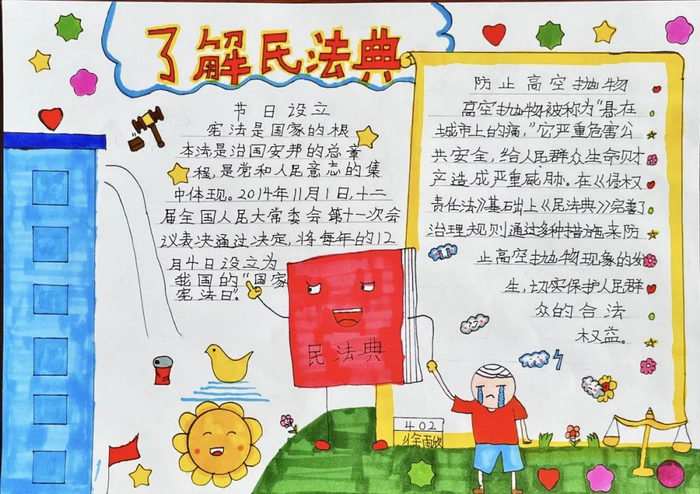 了解民法典
节日设立
宪法是国家的根
本法是治国安邦的总章
程,是党和人民意志的集
中体现。2014年11月1日,十二
届全国人民大常委会第十一次会
议表决通过决定,将每年的12
月4日设立为
我国的“国家
宪法日”。
防止高空抛物
高空抛物被称为“悬在
城市上的痛,”它严重危害公
共安全,给人民群众生命财
产造成严重威胁。在《侵权
责任法》基础上《民法典》完善了
治理规则通过多种措施来防
止高空抛物现象的发
生,切实保护人民群
众的合法
权益。
民法典
402
徐